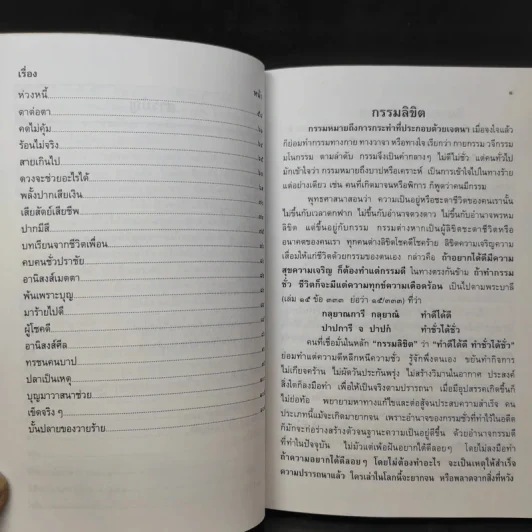 เรื่อง
หน้า
ห่วงหนี้
ตาต่อตา
คดไม่คุ้ม
ร้อนไม่จริง
สายเกินไป
ดวงจะช่วยอะไรได้
พลั้งปากเสียเงิน
เสียสัตย์เสียชีพ
ปากมีสี
บทเรียนจากชีวิตเพื่อน
คบคนชั่วปราชัย
อานิสงส์เมตตา
พ้นเพราะบุญ
มาร้ายไปดี
ผู้โชคดี
อานิสงส์ศีล
ทรชนคนบาป
ปลาเป็นเหตุ
บุญมาวาสนาช่วย
เข็ดจริง ๆ
บั้นปลายของวายร้าย
กรรมลิขิต
กรรมหมายถึงการกระทำที่ประกอบด้วยเจตนา เมื่อจงใจแล้ว
ก็ย่อมทำกรรมทางกาย ทางวาจา หรือทางใจ เรียกว่า กายกรรม วจีกรรม
มโนกรรม ตามลำดับ กรรมจึงเป็นคำกลางๆ ไม่ดีไม่ชั่ว แต่คนทั่วไป
มักเข้าใจว่า กรรมหมายถึงบาปหรือเคราะห์ เป็นการเข้าใจไปในทางร้าย
แต่อย่างเดียว เช่น คนที่เกิดมาจนหรือพิการ ก็พูดว่าคนมีกรรม
พุทธศาสนาสอนว่า ความเป็นอยู่หรือชะตาชีวิตของคนเรานั้น
ไม่ขึ้นกับเวลาตกฟาก ไม่ขึ้นกับอำนาจดวงดาว ไม่ขึ้นกับอำนาจพรหม
ลิขิต แต่ขึ้นอยู่กับกรรม กรรมต่างหากเป็นผู้ลิขิตชะตาชีวิตหรือ
อนาคตของคนเรา ทุกคนต่างลิขิตโชคดีโชคร้าย ลิขิตความเจริญความ
เสื่อมให้แก่ชีวิตด้วยกรรมของตนเอง กล่าวคือ ถ้าอยากได้ดีมีความ
สุขความเจริญ ก็ต้องทำแต่กรรมดี ในทางตรงกันข้าม ถ้าทำกรรม
ชั่ว ชีวิตก็จะมีแต่ความทุกข์ความเดือดร้อน เป็นไปตามพระบาลี
(เล่ม ๑๕ ข้อ ๓๓๓ ย่อว่า ๑๕/๓๓๓) ที่ว่า
กลฺยาณการี กลฺยาณํ ทำดีได้ดี
ปาปการี จ ปาปกํ ทำชั่วได้ชั่ว
คนที่เชื่อมั่นในหลัก "กรรมลิขิต" ว่า "ทำดีได้ดี ทำชั่วได้ชั่ว"
ย่อมทำแต่ความดีหลีกหนีความชั่ว รู้จักพึ่งตนเอง ขยันทำกิจการ
ไม่เกียจคร้าน ไม่ผัดวันประกันพรุ่ง ไม่สร้างวิมานในอากาศ ประสงค์
สิ่งใดก็ลงมือทำ เพื่อให้เป็นจริงตามปรารถนา เมื่อมีอุปสรรคเกิดขึ้นก็
ไม่ย่อท้อ พยายามหาทางแก้ไขและต่อสู้จนประสบความสำเร็จ คน
ประเภทนี้แม้จะเกิดมายากจน เพราะอำนาจของกรรมชั่วที่ทำไว้ในอดีต
ก็มักจะก่อร่างสร้างตัวจนฐานะความเป็นอยู่ดีขึ้น ด้วยอำนาจกรรมดี
ที่ทำในปัจจุบัน ไม่มัวแต่เพ้อฝันอยากได้ดีลอยๆ โดยไม่ลงมือทำ
ถ้าความอยากได้ดีลอยๆ โดยไม่ต้องทำอะไร จะเป็นเหตุให้สำเร็จ
ความปรารถนาแล้ว ใครเล่าในโลกนี้จะยากจน หรือพลาดจากสิ่งที่หวัง